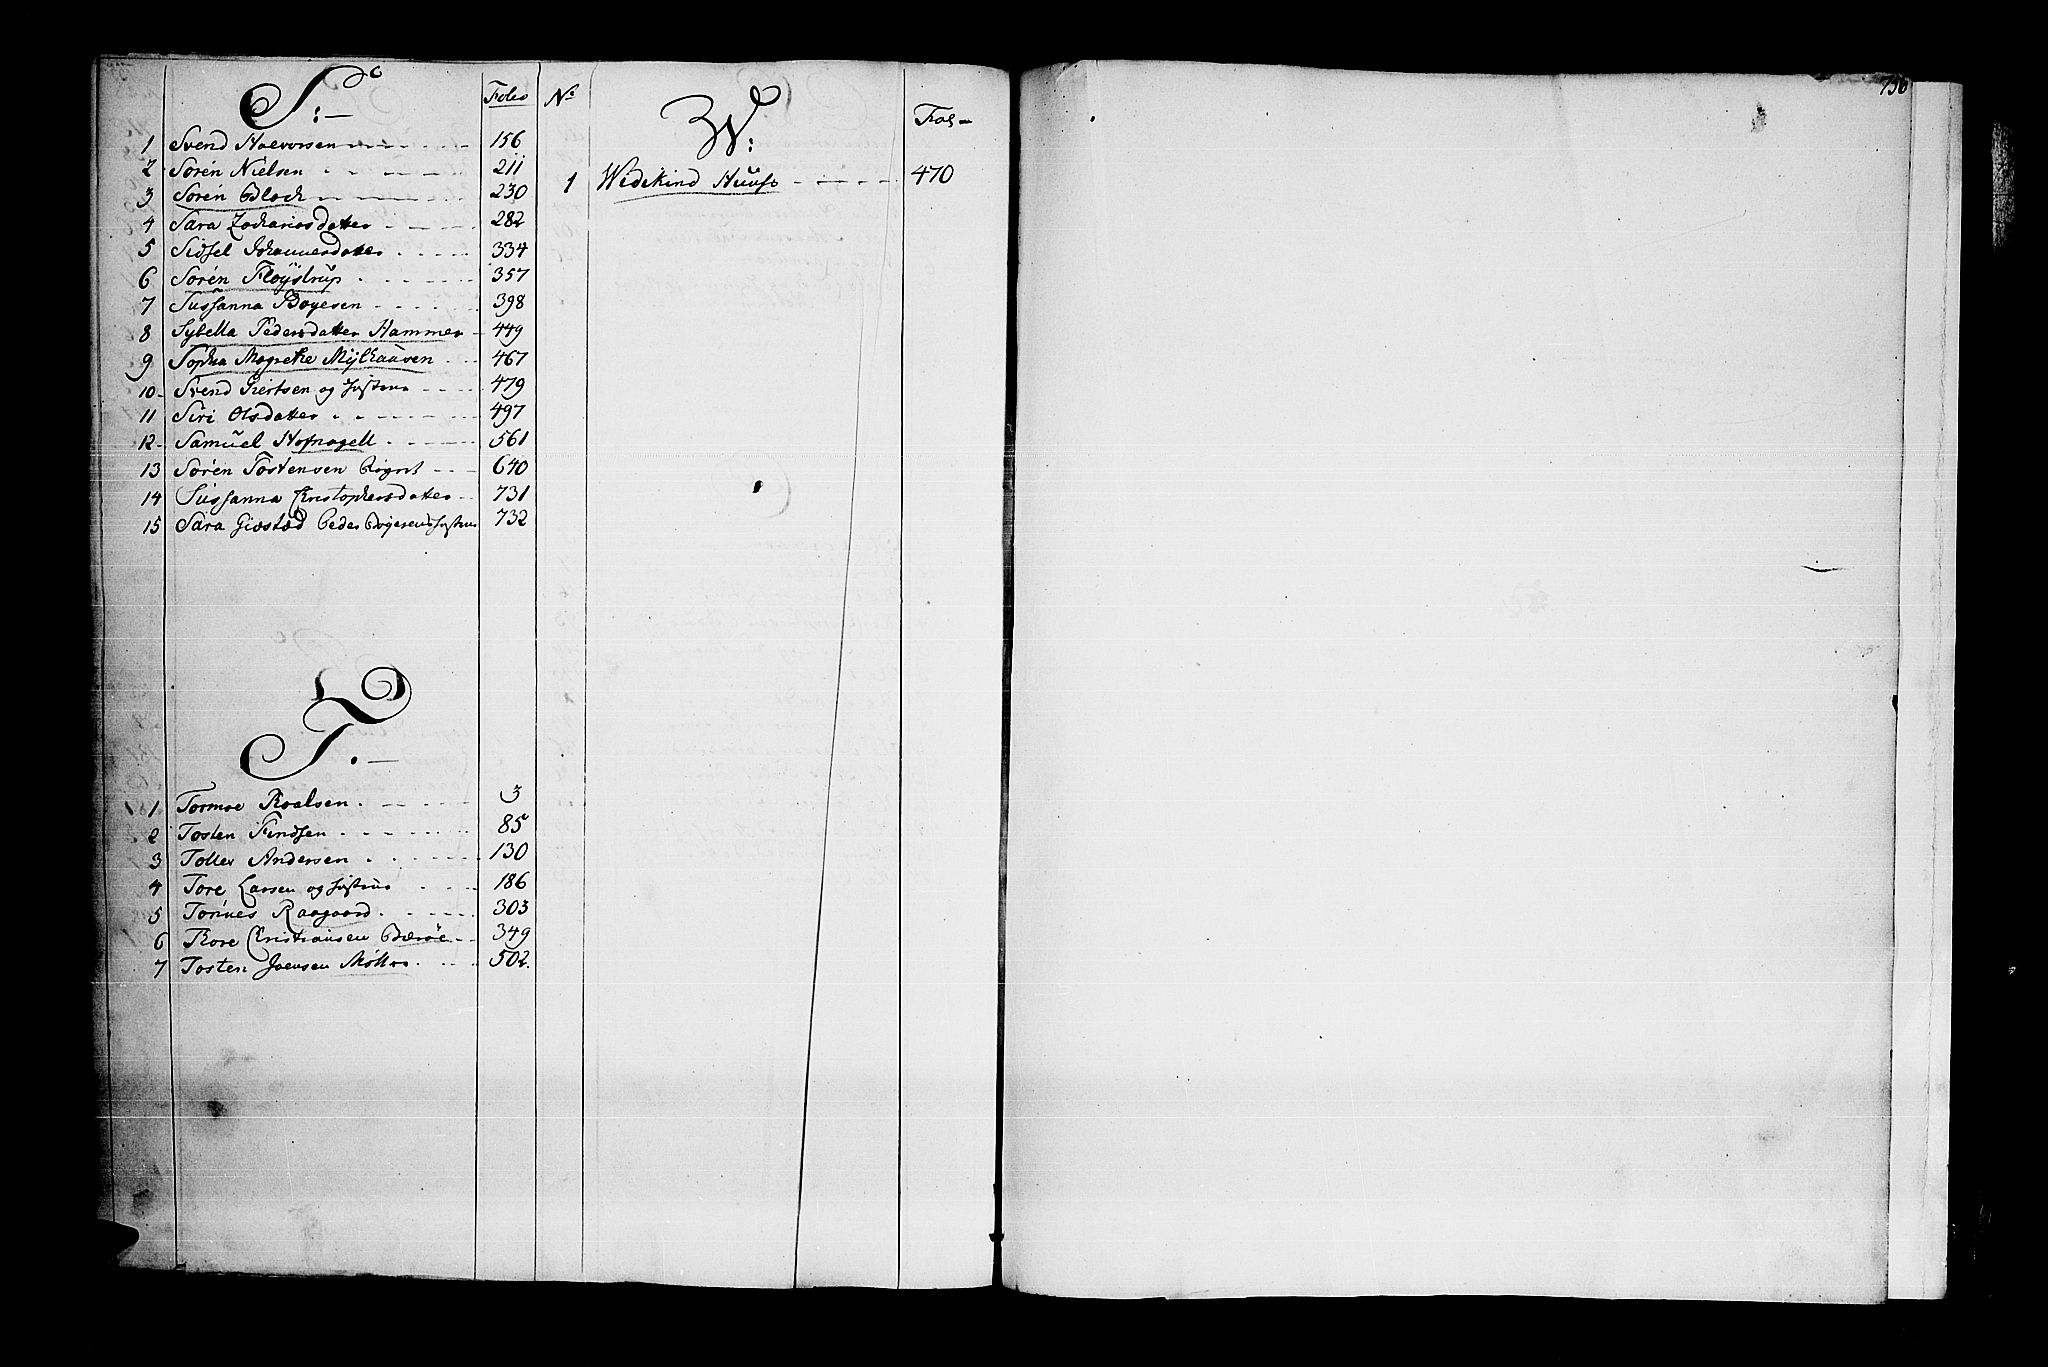 S:
Folio
1 Svend Halvorsen 156
2 Sorén Nielsen 211
3 Sorén Bloch 230
4 Sara Zachariasdatter 282
5 Sidsel Johannesdatter 334
6 Sorén Fløystrup 357
7 Sussanna Boyesen 398
8 Sybella Pedersdatter Hammer 449
9 Sophia Magrethe Mylhausen 467
10 Svend Giertsen og Hustrue 479
11 Siri Olsdatter 497
12 Samuel Hofnagell 561
13 Sorén Tostensen 640
14 Sussanna Christophersdatter 731
15 Sara Peder Boyesens Hustrue 732
T.
1 Tormoe Roalsen 3
2 Tosten Findsen 85
3 Tollev Andersen 130
4 Tore Larsen og Hustrue 186
5 Tonnes Raagaard 303
6 Thore Christiansen Bærøe 349
7 Tosten Joensen Møller 502.
No
W:
Fol
1 Wedekind Huus 470
736